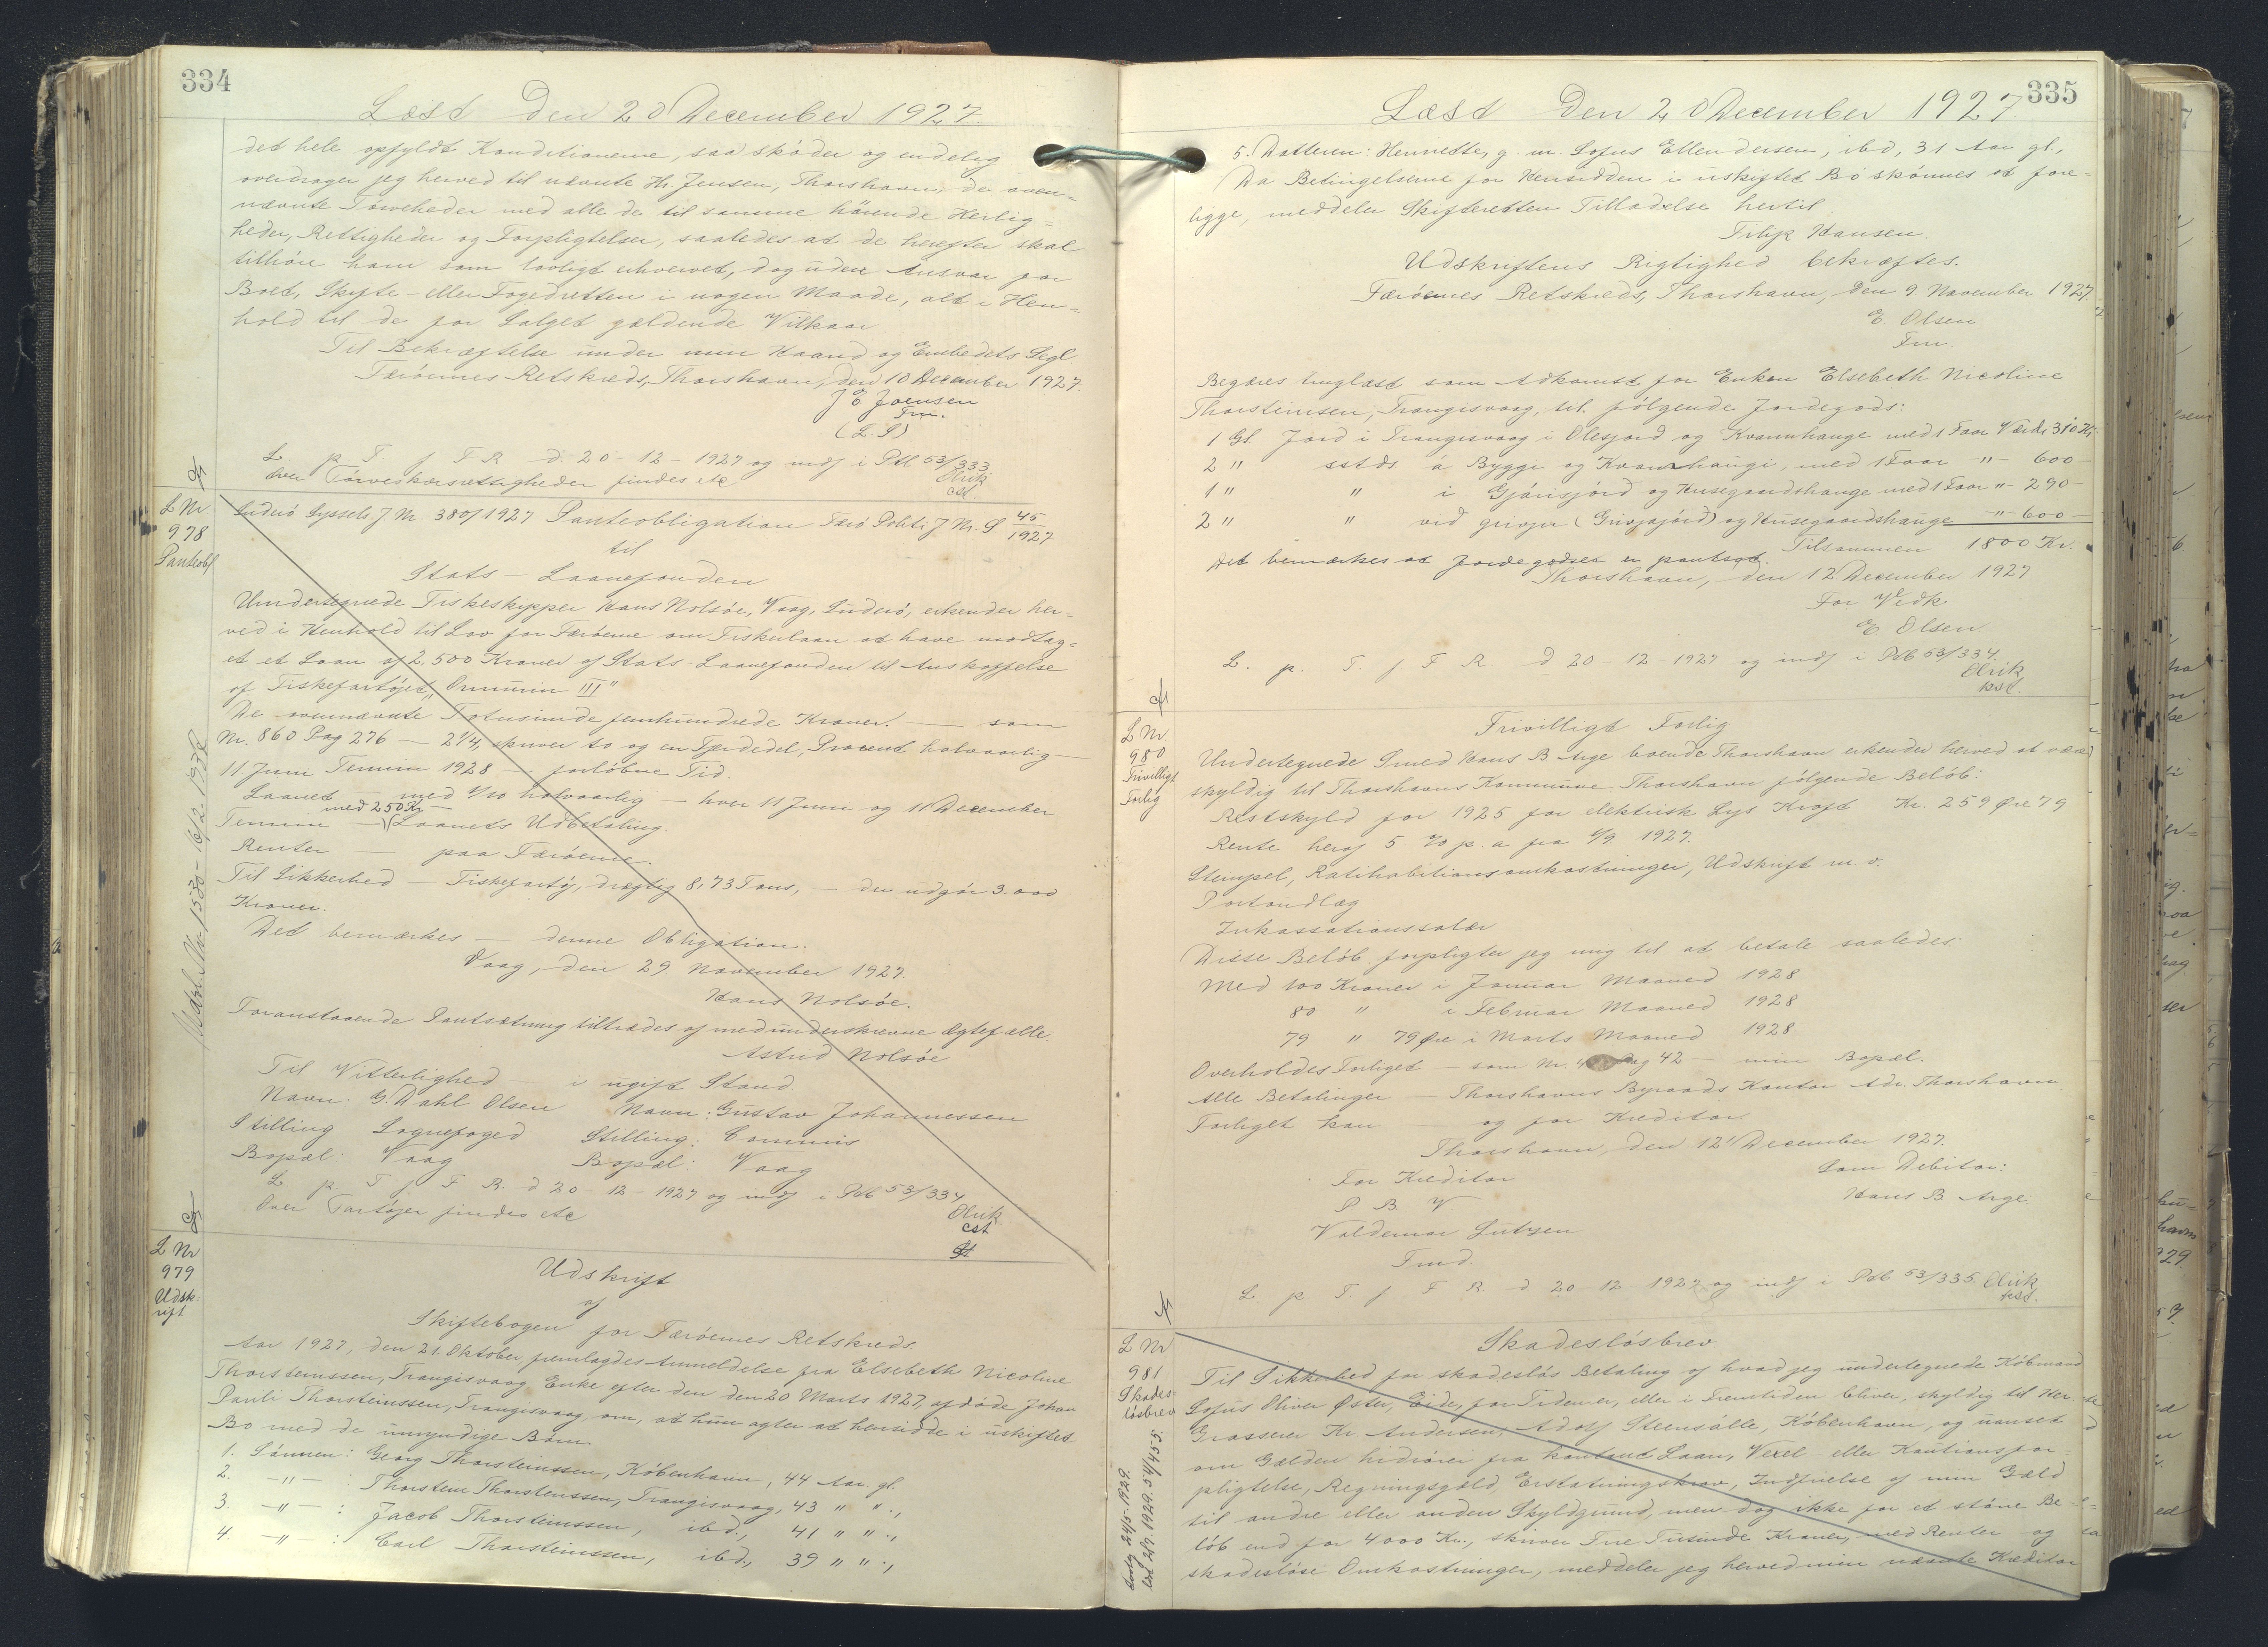 334
Læst den 20 December 1927
det hele opfyldt Konditionerne, saa skøder og endelig
overdrager jeg herved til nævnte Hr. Jensen, Thorshavn, de oven-
nævnte Tørveheder med alle de til samme hørende Herlig=
heder, Rettigheder og Forpligtelser, saaledes at de herefter skal
tilhøre ham som lovligt erhvervet, dog uden Ansvar for
Boet, Skifte- eller Fogedretten i nogen Maade, alt i Hen=
hold til de for Salget gældende Vilkaar
Til Bekræftelse under min Haand og Embedets Segl.
Færøernes Retskreds, Thorshavn, den 10 December 1927.
J E Joensen
Fm.
(L. S)
L. p. T. f F R d. 20-12-1927 og indf i Ptb 53/333.
Over Tørveskærsrettigheder findes etc
Olrik
cst
L Nr
978
Panteobl
Suderø Syssels J. Nr. 380/1927 Panteobligation Færø Politi J Nr. P 45/1927
til
Stats-Laanefonden
Undertegnede Fiskeskipper Hans Nolsøe, Vaag, Suderø, erkender her=
ved i Henhold til Lov for Færøerne om Fiskerlaan at have modtag=
et et Laan af 2.500 Kroner af Stats-Laanefonden til Anskaffelse
af Fiskefartøjet "Ormurin III"
De ovennævnte Totusinde femhundrede Kroner! — som
Nr. 860 Pag 276 — 2¼, skriver to og en Fjerdedel, Procent halvaarlig —
11 Juni Termin 1928 — forløbne Tid.
Laanet — med 1/10 halvaarlig — hver 11 Juni og 11 December
med 250 Kr —
Termin — Laanets Udbetaling.
Renter — paa Færøerne.
Til Sikkerhed — Fiskefartøj, drægtig 8,73 Tons, — den udgør 3.000
Kroner.
Det bemærkes — denne Obligation.
Vaag, den 29 November 1927.
Hans Nolsøe.
Foranstaaende Pantsætning tiltrædes af medunderskrevne Ægtefælle.
Astrid Nolsøe
Til Vitterlighed i ugift Stand.
Navn: G. Dahl Olsen Navn: Gustav Johannessen
Stilling Sognefoged Stilling: Commis
Bopæl: Vaag Bopæl: Vaag
L p. T f F R. d 20-12-1927 og indf i Ptb 53/334
Over Fartøjer findes etc
Olrik
cst
L Nr
979
Udsk-
rift
Udskrift
af
Skiftebogen for Færøernes Retskreds.
Aar 1927, den 21. Oktober, fremlagdes Anmeldelse fra Elsebeth Nicoline
Thorsteinssen, Trangisvaag Enke efter den den 20 Marts 1927, afdøde Johan
Pauli Thorsteinssen, Trangisvaag, om, at hun agter at hensidde i uskiftet
Bo med de umyndige Børn
1. Sønnen: Georg Thorsteinssen, København, 44 Aar gl.
2. -"- : Thorstein Thorsteinssen, Trangisvaag, 43 " ".,
3. -"- : Jacob Thorsteinssen, ibd., 41 " ".,
4. -"- : Carl Thorsteinssen, ibd., 39 " ".,
335
Læst den 20 December 1927
5. Datteren: Henriette, g. m. Sofus Ellendersen, ibd, 31 Aar gl.,
Da Betingelserne for Hensidden i uskiftet Bo skønnes at fore-
ligge, meddeler Skifteretten Tilladelse hertil
Filip Hansen.
Udskriftens Rigtighed bekræftes.
Færøernes Retskreds, Thorshavn, den 9 November 1927.
E Olsen
Fm.
Begæres tinglæst som Adkomst for Enken Elsebeth Nicoline
Thorsteinssen, Trangisvaag, til følgende Jordegods:
1 Gl. Jord i Trangisvaag i Olesjord og Kvannhauge med 1 Faar Værdi 310 Kr.
2 " sstds á Byggi og Kvannhaugi, med 1 Faar -"- 600-
1 " " i Gjárisjørd og Husegaardshauge med 1 Faar " 290-
2 " " vid grivjer (Grivjajørd) og Husegaardshauge -"- 600-
Tilsammen 1800 Kr.
Det bemærkes at Jordegodset er pantsat.
Thorshavn, den 12 December 1927
For Vedk
E. Olsen
L. p. T. f F R. d 20-12-1927 og indf i Ptb 53/334.
Olrik
kst.
L Nr.
980
Frivilligt
Forlig
Frivilligt Forlig
Undertegnede Smed Hans B. Arge boende Thorshavn erkender herved at være
skyldig til Thorshavns Kommune Thorshavn følgende Beløb:
Restskyld for 1925 for elektrisk Lys Kraft Kr. 259 Øre 79
Rente heraf 5 % p. a fra 1/9 1927.
Stempel, Ratihabitionsomkostninger, Udskrift m. v.
Portoudlæg
Inkassationssalær
Disse Beløb forpligter jeg mig til at betale saaledes.
Med 100 Kroner i Januar Maaned 1928
80 " i Februar Maaned 1928
79 " 79 Øre i Marts Maaned 1928
Overholdes Forliget — som Nr. 4 Pag 42 — min Bopæl.
Alle Betalinger — Thorshavns Byraads Kontor Adr. Thorshavn
Forliget kan — og for Kreditor.
Thorshavn, den 12' December 1927.
For Kreditor Som Debitor:
P. B. V Hans B Arge.
Valdemar Lutzen
Fmd.
L p T. f F R d 20-12-1927 og indf i Ptb 53/335. Olrik
kst.
L Nr
981
Skades-
løsbrev
Skadesløsbrev
Til Sikkerhed for skadesløs Betaling af hvad jeg undertegnede Købmand
Sofus Oliver Øster, Eide, for Tiden er, eller i Fremtiden bliver, skyldig til Her
Grosserer Kr Andersen, Adolf Steensalle, København, og uanset
om Gælden hidrører fra kontant Laan, Vexel- eller Kautionsfor-
pligtelse, Regningsgæld, Erstatningskrav, Indfrielse af min Gæld
til andre eller anden Skyldgrund, men dog ikke for et større Be-
løb end for 4000 Kr., skriver Fire Tusinde Kroner, med Renter og
skadesløse Omkostninger, meddeler jeg herved min nævnte Kreditor